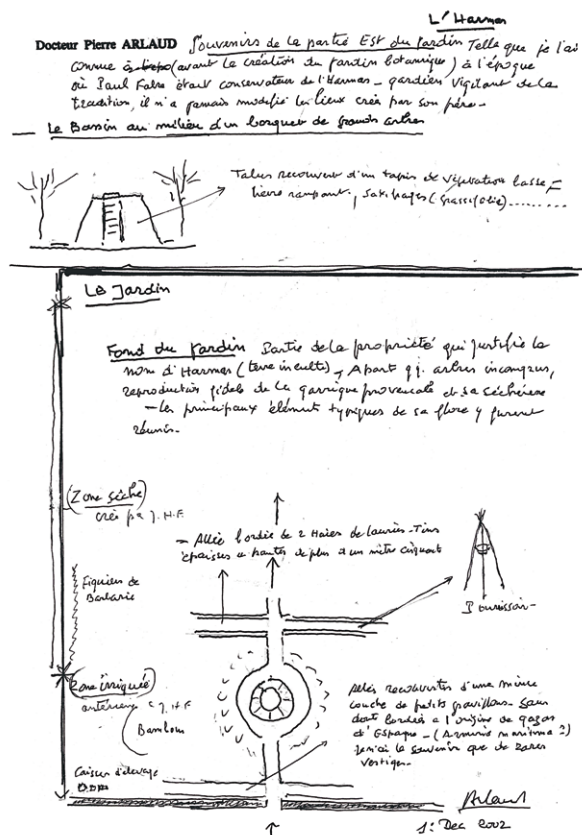 L'Harmas
Docteur Pierre ARLAUD Souvenirs de la partie Est du Jardin Telle que je l'ai
connue (avant la création du jardin botanique) à l'époque
où Paul Fabre étant conservateur de l'Harmas - gardien vigilant de la
tradition, il n'a jamais modifié les lieux créés par son père -
Le Bassin au milieu d'un bosquet de grands arbres
Talus recouvert d'un tapis de végétation basse
lierre rampant, saxifrages
Le Jardin
Fond du Jardin Partie de la propriété qui justifie le
nom d'Harmas (terre inculte), Apart q.q. arbres incongrus,
reproduction fidèle de la garrigue provençale et sa sécheresse
- les principaux élément typiques de sa flore y furent
réunis -
(Zone sèche)
crée par J.H.F
- Allée bordée de 2 Haies de lauriers-Tins
épaisses et hautes de plus d'un mètre cinquante
Figuiers de
Barbarie
Pourrissoir -
Zone irriguée
antérieure à J.H.F
Bambous
Allées recouvertes d'une mince
couche de petits gravillons - sans
doute bordées à l'origine de gazon
d'Espagne - (Armeria maritima ?)
le souvenir que de rares
vestiges -
Caisses d'élevage
Arlaud
1° Dec 2002